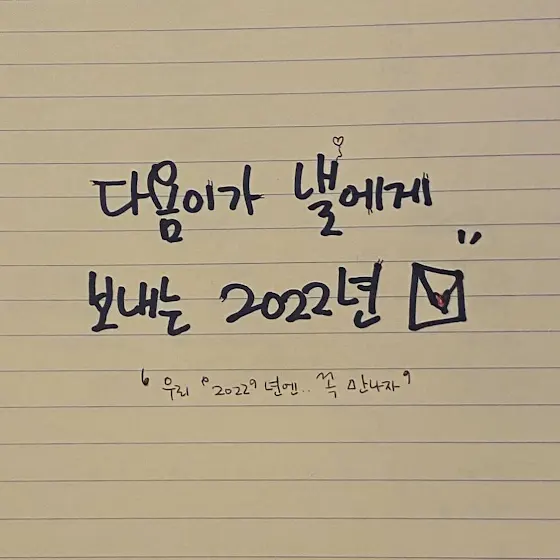 다옴이가 낼에게
보내는 2022년
' 우리 '2022'년엔.. 꼭 만나자 '